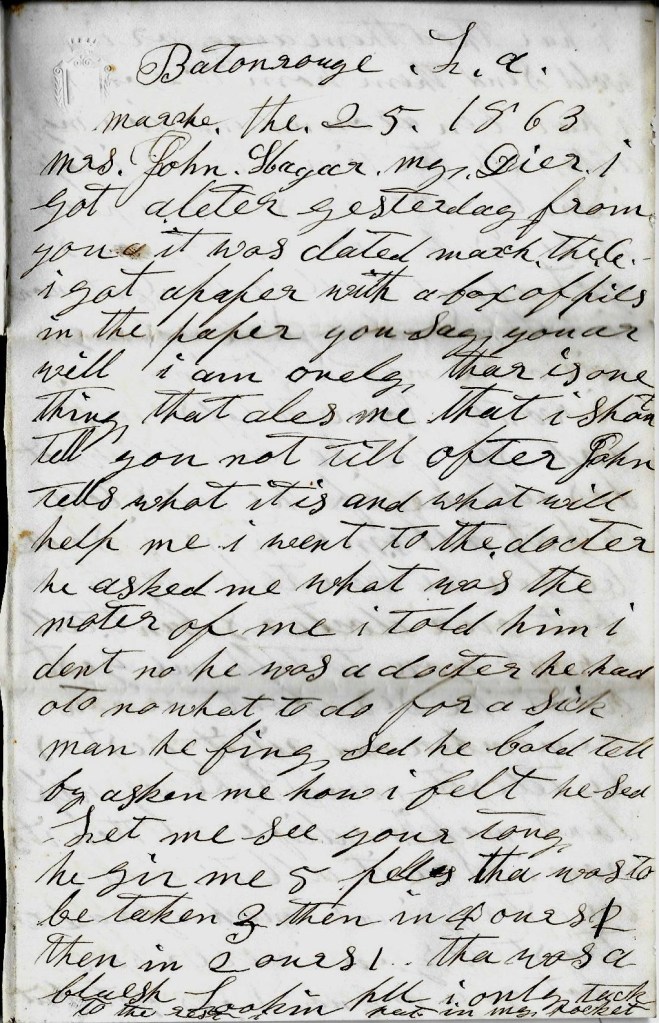 Batonrouge . L. a.
marche. the. 25. 1863
mrs. John. Hagar. my. Dier. i
got aleter yesterday from
you it was dated march. the. 6. -
i got apaper with abox of pils
in the paper you say, you ar
well i am onely, thar is one
thing, that ales me that i shan
tell you not till after John
tells what it is and what will
help me i went to the. docter
he asked me what was the
mater of me i told him i
dont no he was a docter he had
oto no what to do for a sick
man he sed he tell
by asken me how i felt he sed
Let me see your tong,
he giv me 5 pells tha was to
be taken 2 then in 4 ours 2
then in 2 ours 1 . tha was a
bluesh Lookin pill i only tuck
to the rest i put in my pocket